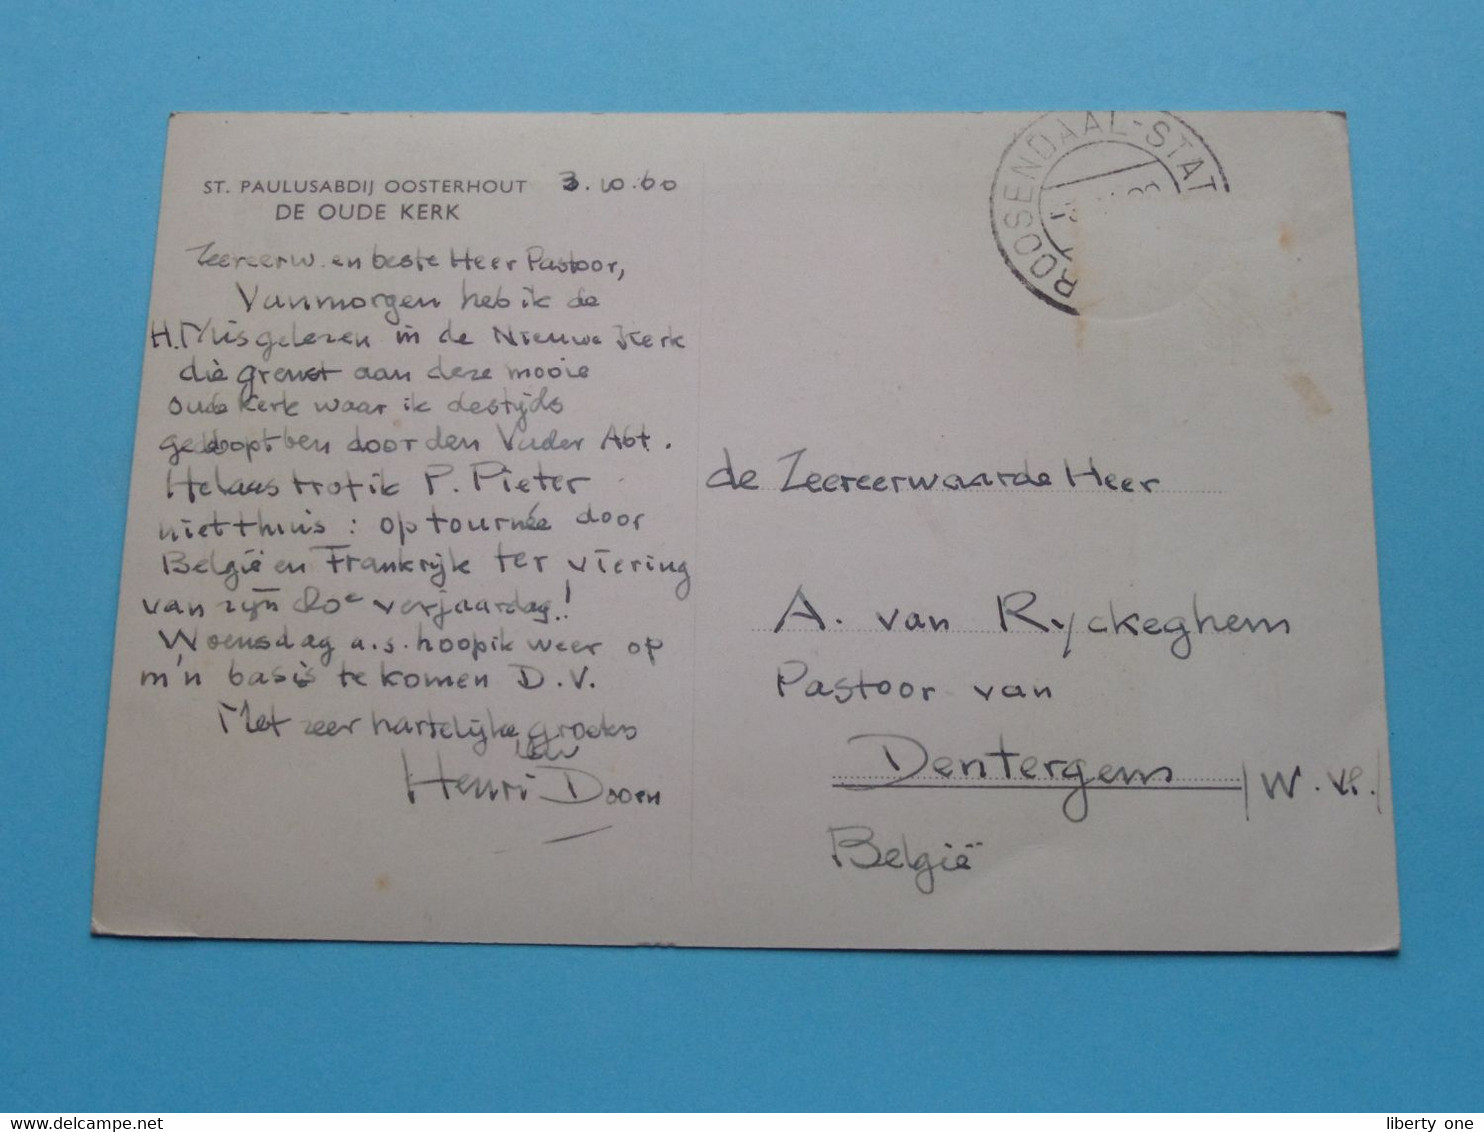 ST. PAULUSABDIJ OOSTERHOUT 3.10.60
DE OUDE KERK
Zeereerw. en beste Heer Pastoor,
Vanmorgen heb ik de
H. Mis gelezen in de Nieuwe Kerk
die grenst aan deze mooie
oude kerk waar ik destijds
gedoopt ben door den Vader Abt.
Helaas trof ik P. Pieter
niet thuis: op tournée door
België en Frankrijk ter viering
van zijn 80e verjaardag!
Woensdag a.s. hoop ik weer op
m'n basis te komen D.V.
Met zeer hartelijke groeten
uw
Henri Doorn
ROOSENDAAL-STAT
de Zeereerwaarde Heer
A. van Ryckeghem
Pastoor van
Dentergem (W. Vl.)
België
www.delcampe.net
liberty one